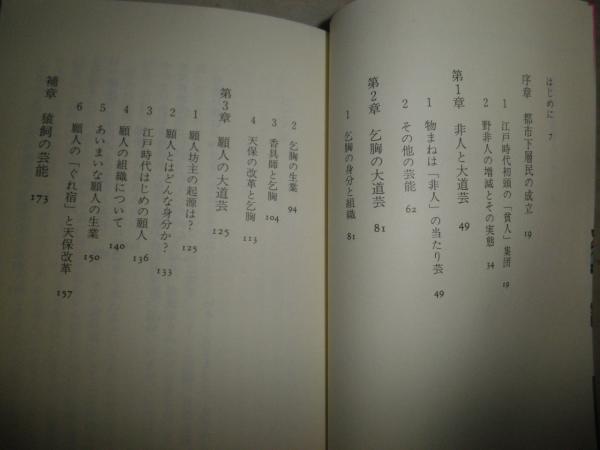 はじめに 7
序章 都市下層民の成立 19
1 江戸時代初頭の「貧人」集団 19
2 野非人の増減とその実態 34
第1章 非人と大道芸 49
1 物まねは「非人」の当たり芸 49
2 その他の芸能 62
第2章 乞胸の大道芸 81
1 乞胸の身分と組織 81
2 乞胸の生業 94
3 香具師と乞胸 104
4 天保の改革と乞胸 113
第3章 願人の大道芸 125
1 願人坊主の起源は? 125
2 願人とはどんな身分か? 133
3 江戸時代はじめの願人 136
4 願人の組織について 140
5 あいまいな願人の生業 150
6 願人の「ぐれ宿」と天保改革 157
補章 猿飼の芸能 173